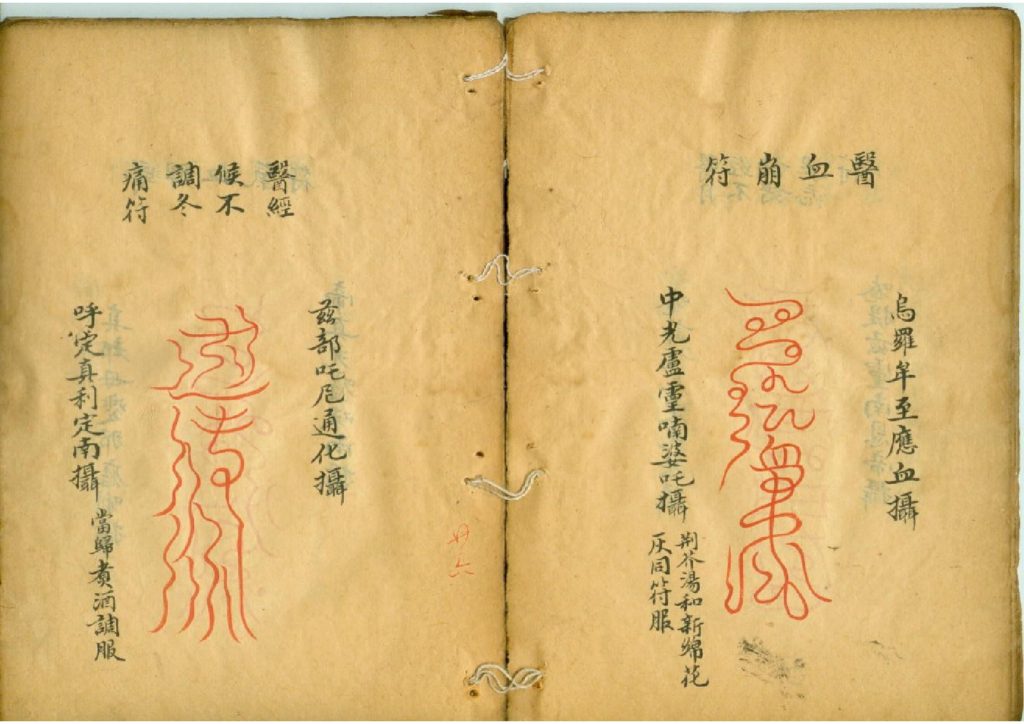 醫血崩符
烏羅年至應血攝
中光盧靈喃婆吒攝
荆芥湯和新綿花
灰同符服
醫經
候不
調冬
痛符
茲部吒尼通化攝
呼定真利定南攝
當歸煮酒調服